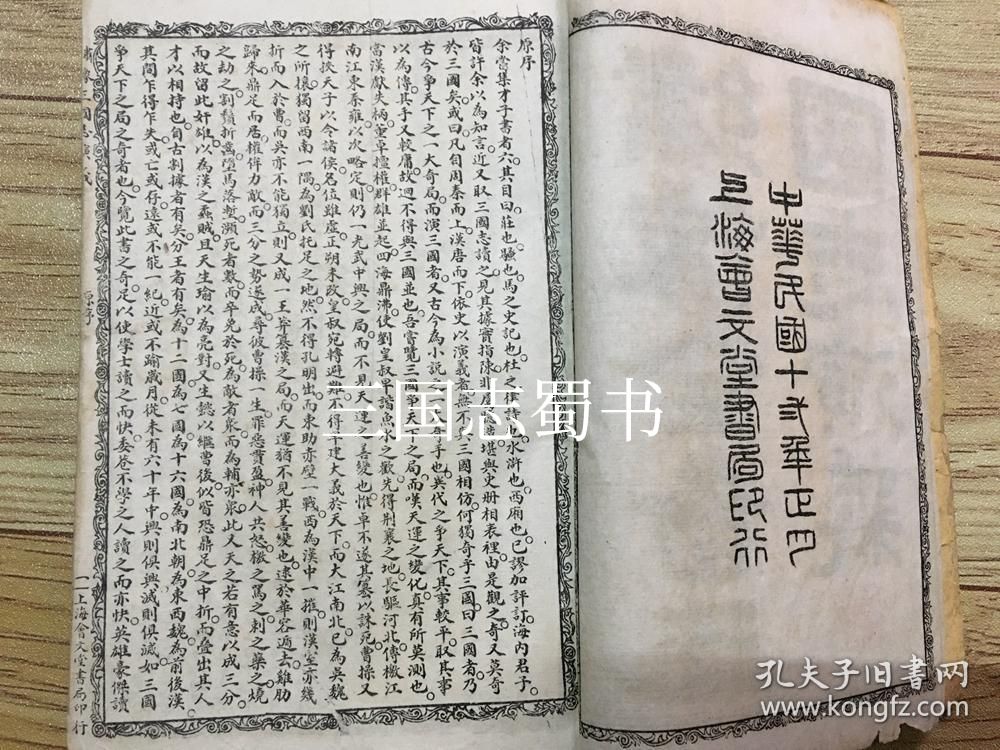 中華民國十弍年正月
上海會文堂書局印行
原序
余嘗集才子書者六其目曰莊也騷也馬之史記也杜之律詩也水滸也西廂也已謬加評訂海內君子
皆許余以為知言近又取三國志讀之見其據實指陳非屬臆造堪與史册相表裡由是觀之奇又莫奇
於三國矣或曰凡自周秦而上漢唐而下依史以演義者無不與三國相仿何獨奇乎三國曰三國者乃
古今爭天下之一大奇局而演三國者又古今為小說之一大奇手也異代之爭天下其事較平取其事
以為傳其手又較庸故迥不得與三國並也吾嘗覽三國爭天下之局而嘆天運之變化真有所莫測也
當漢獻失柄董卓擅權群雄並起四海鼎沸使劉皇叔早諧魚水之歡先得荊襄之地長驅河北傳檄江
南江東秦雍以次略定則仍一光武中興之局而不見天運之善變也惟卓不遂其篡以誅死曹操又
得挾天子以令諸侯名位雖虛正朔未改皇叔宛轉避難不得早建大義於天下而大江南北已為吳魏
之所攘獨留西南一隅為劉氏托足之地然不得孔明出而東助赤壁一戰西為漢中一摧則漢室亦幾
折而入於曹而吳亦不能獨立則又成一王莽篡漢之局而天運猶不見其善變也逮於華容遁去雞肋
歸來鼎足而居權侔力敵而三分之勢遂成尋彼曹操一生罪惡貫盈神人共怒檄之罵之刺之藥之燒
之劫之割鬚折齒墮馬落塹瀕死者數而卒免於死為敵者衆而為輔亦衆此又天之若有意以成三分
而故留此奸雄以為漢之蟊賊且天生瑜以為亮對又生懿以繼曹後似皆恐鼎足之中折而叠出其人
才以相持也自古割據者有矣分王者有矣為十二國為七國為十六國為南北朝為東西魏為前後漢
其間乍得乍失或亡或存遠或不能一紀近或不踰歲月從未有六十年中興則俱興滅則俱滅如三國
爭天下之局之奇者也今覽此書之奇足以使學士讀之而快委巷不學之人讀之而亦快英雄豪傑讀
三國志演義 原序 一 上海會文堂書局印行
三国志蜀书
孔夫子旧书网
www.kongfz.com